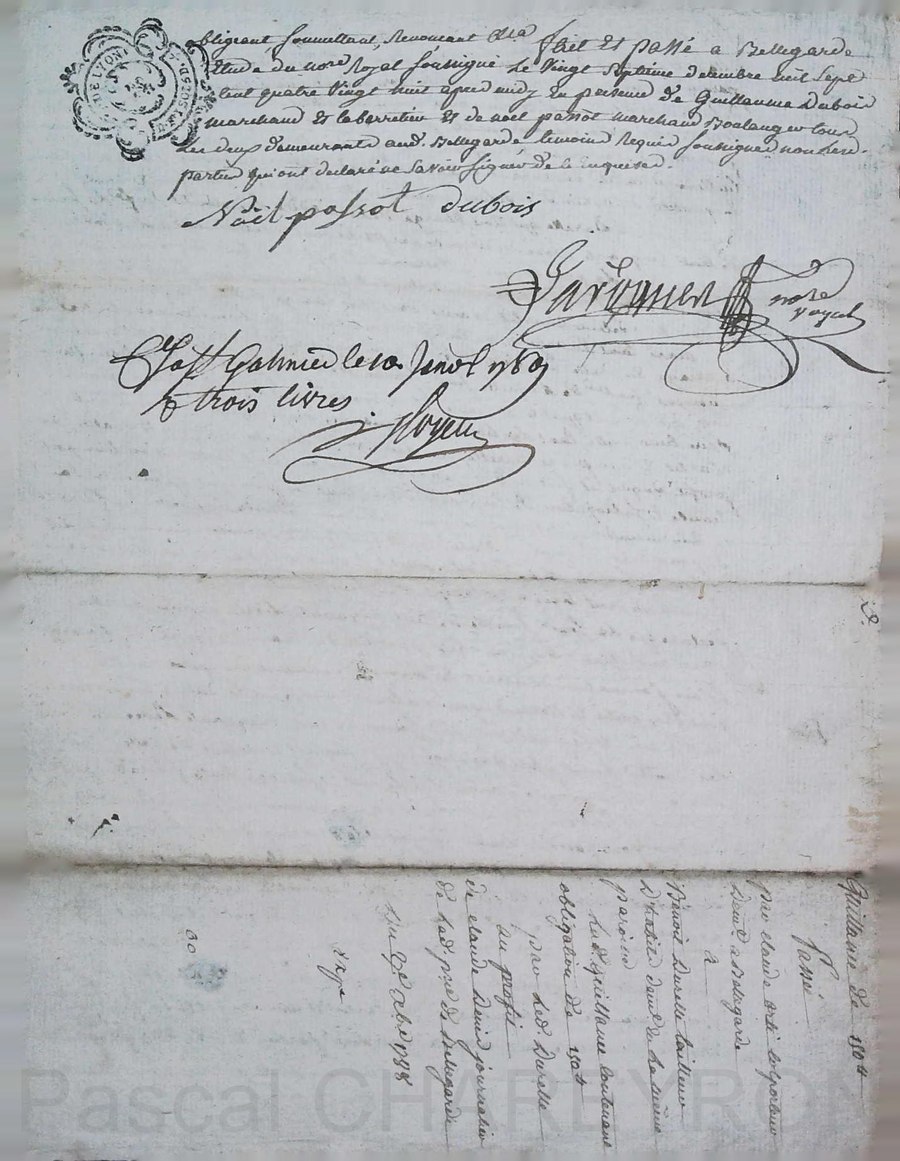 obligeant soumettant, Renoncant &ca fait et passé a Bellegarde
Etude du nore Royal soussigné Le Vingt Septieme decembre mil sept
cent quatre Vingt huit apres midy En presence de Guillaume Dubois
marchand et cabarretier et de noël passot marchand Boulanger tous
Les deux demeurants aud. Bellegarde temoins Requis soussignés non Les d.
parties qui ont declaré ne savoir signer de ce enquises.
Noël passot dubois
nore royal
le 10 Janv. 1789
trois livres
DE LYON
Quittance de 150#
Passé
par claude
Demt a Bellegarde
a
Benoit Durelle tailleur
D'habit demt de la même
paroisse
Lad. quittance contenant
obligation de 150#
par led. Durelle
au profit
de claude journalier
de lad. pse de Bellegarde
du 27 Xbre 1788
Pascal CHAREYRON